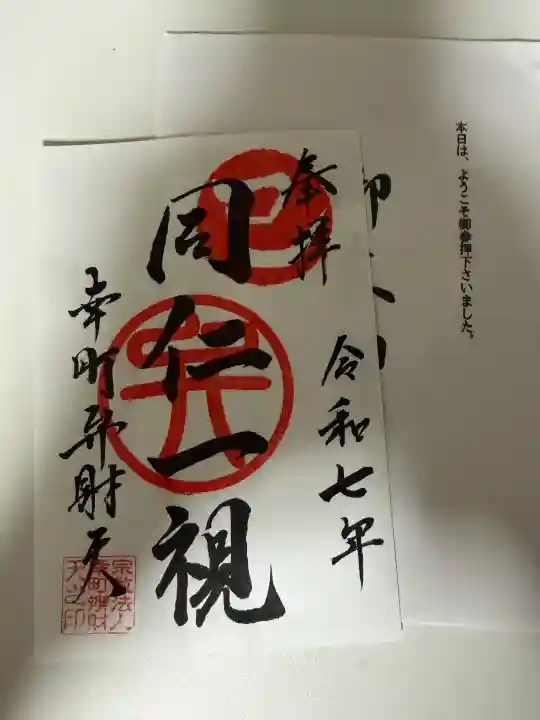 本日は、ようこそ御参拝下さいました。
奉拝
令和七年
同仁一視
幸町弁財天
宗教法人
幸町辨財
天之印